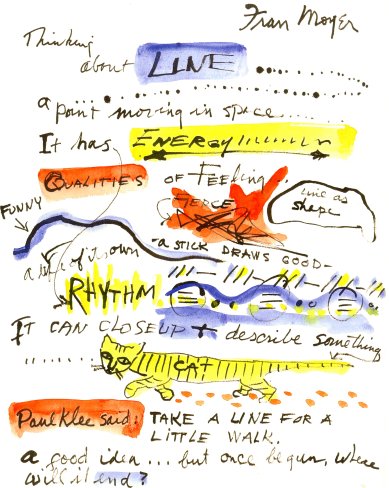 Fran Moyer
Thinking
about LINE
a point moving in space......
It has ENERGY
QUALITIES OF FEELING
FUNNY
FIERCE
line as
shape
a life of its own
"a STICK DRAWS GOOD-
RHYTHM
IT CAN CLOSEUP + describe something
CAT
Paul Klee said: TAKE A LINE FOR A
LITTLE WALK.
a good idea... but once begun, where
will it end?